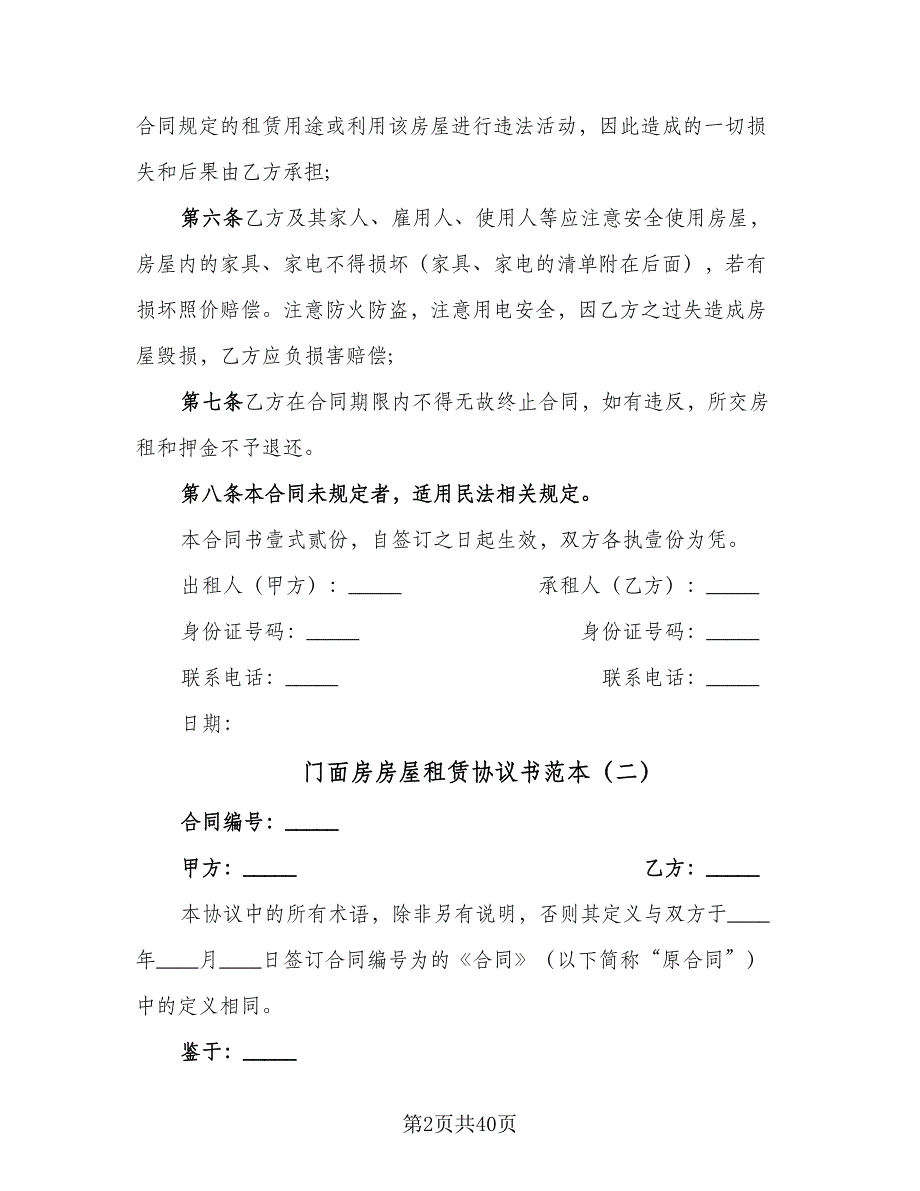 合同规定的租赁用途或利用该房屋进行违法活动，因此造成的一切损
失和后果由乙方承担;
第六条乙方及其家人、雇用人、使用人等应注意安全使用房屋，
房屋内的家具、家电不得损坏（家具、家电的清单附在后面），若有
损坏照价赔偿。注意防火防盗，注意用电安全，因乙方之过失造成房
屋毁损，乙方应负损害赔偿;
第七条乙方在合同期限内不得无故终止合同，如有违反，所交房
租和押金不予退还。
第八条本合同未规定者，适用民法相关规定。
本合同书壹式贰份，自签订之日起生效，双方各执壹份为凭。
出租人（甲方）：_____ 承租人（乙方）：_____
身份证号码：_____ 身份证号码：_____
联系电话：_____ 联系电话：_____
日期：
门面房房屋租赁协议书范本（二）
合同编号：_____
甲方：_____ 乙方：_____
本协议中的所有术语，除非另有说明，否则其定义与双方于____
年____月____日签订合同编号为的《合同》（以下简称“原合同”）
中的定义相同。
鉴于：_____
第2页共40页